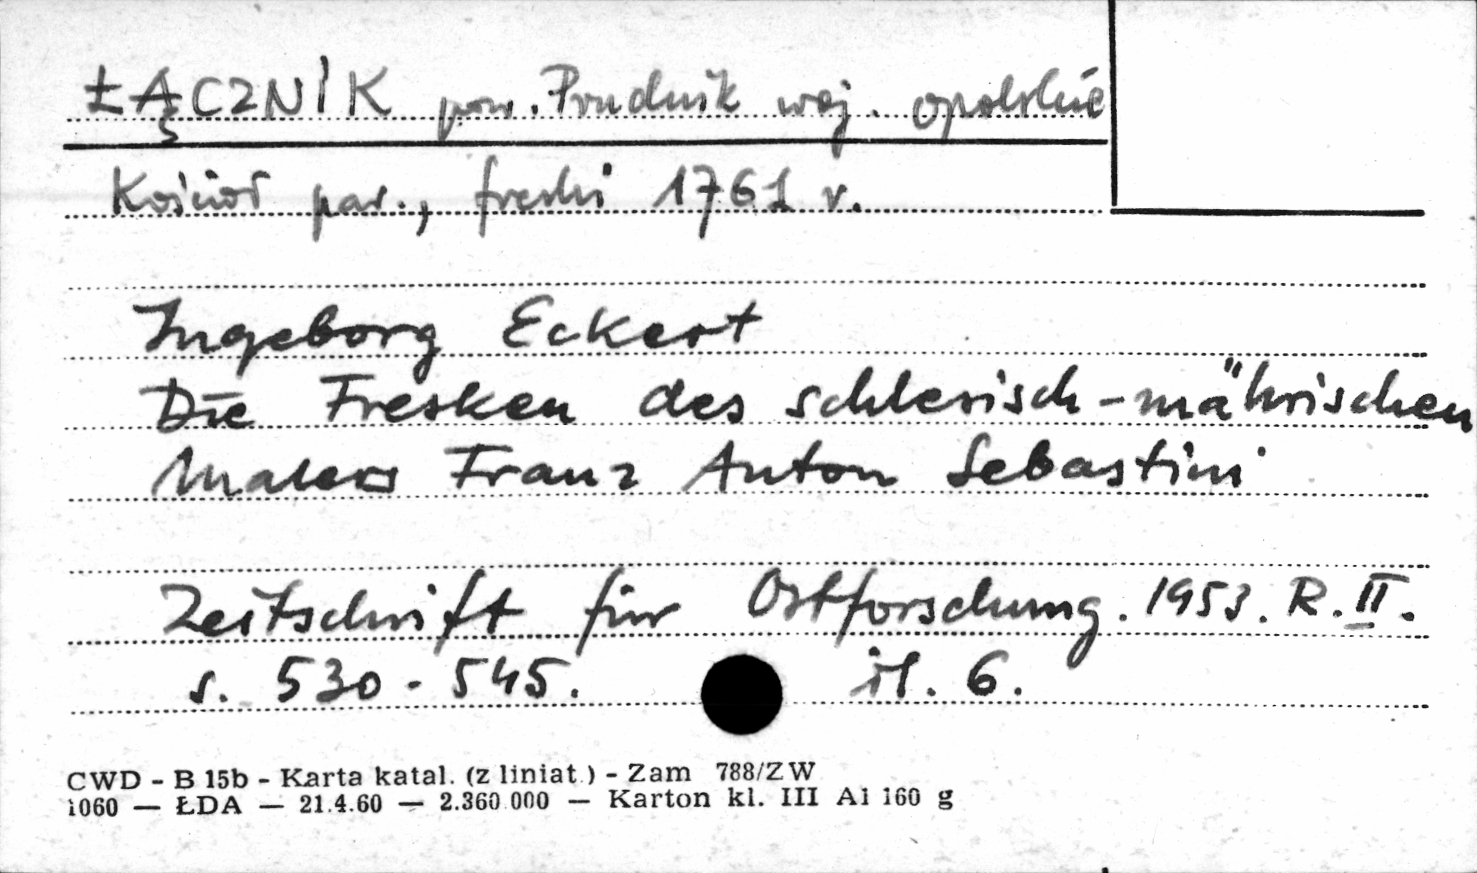 ŁĄCZNIK pow. Prudnik woj. opolskie
Kościoł par., freski 1761 r.
Ingeborg Eckert
Die Fresken des schlesisch-mährischen
Malers Franz Anton Sebastini
Zeitschrift für Ostforschung. 1953. R. II.
s. 530 - 545. il. 6.
CWD - B 15b - Karta katal. (z liniat.) - Zam 788/ZW
1060 — ŁDA — 21.4.60 — 2.360.000 — Karton kl. III A1 160 g